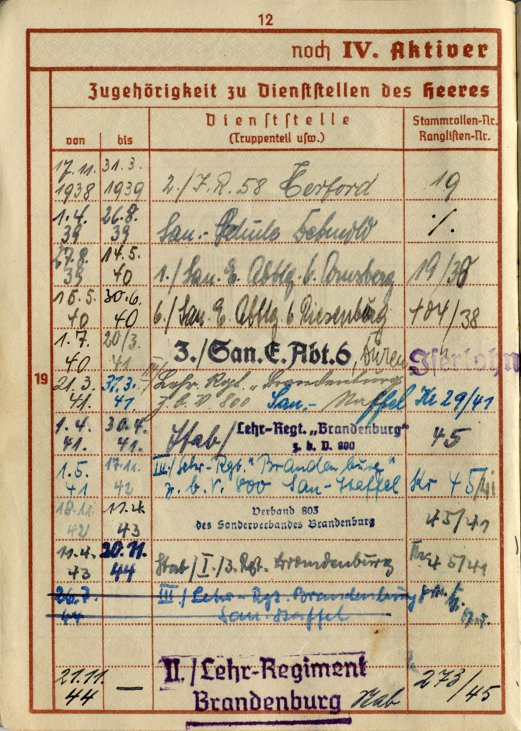 12
noch IV. Aktiver
Zugehörigkeit zu Dienststellen des Heeres
von bis Dienststelle (Truppenteil usw.) Stammrollen-Nr. Ranglisten-Nr.
17.11. 1938 31.3. 1939 2./I.R. 58 Herford 19
1.4. 39 26.8. 39 San.- Schule Detmold ./.
27.8. 39 14.5. 40 1./San. E. Abtlg. 6 Arnsberg 19/38
15.5. 40 30.6. 40 6./San. E. Abtlg. 6 Riesenburg 184/38
1.7. 40 20/3. 41. 3./San. E. Abt. 6, Düren Iserlohn
19
21.3. 41. 31.3. 41 III/ Lehr. Rgt. „Brandenburg"
z.b.V 800 San.- Staffel Kr 29/41
1.4. 41. 30.4. 41. Stab/ Lehr-Regt. „Brandenburg"
z. b. V. 800 45
1.5. 41 17.11. 42 III./Lehr-Rgt. "Brandenburg"
z.b.V. 800 San-Staffel Kr 45/41
18.11. 42 11.4. 43 Verband 803
des Sonderverbandes Brandenburg 45/41
11.4. 43 20.11. 44 Stab/I./3. Rgt. Brandenburg 45/41
26.7. 44 III./Lehr-Rgt. Brandenburg
San. Staffel
21.11. 44 — II./Lehr-Regiment
Brandenburg Stab 273/45